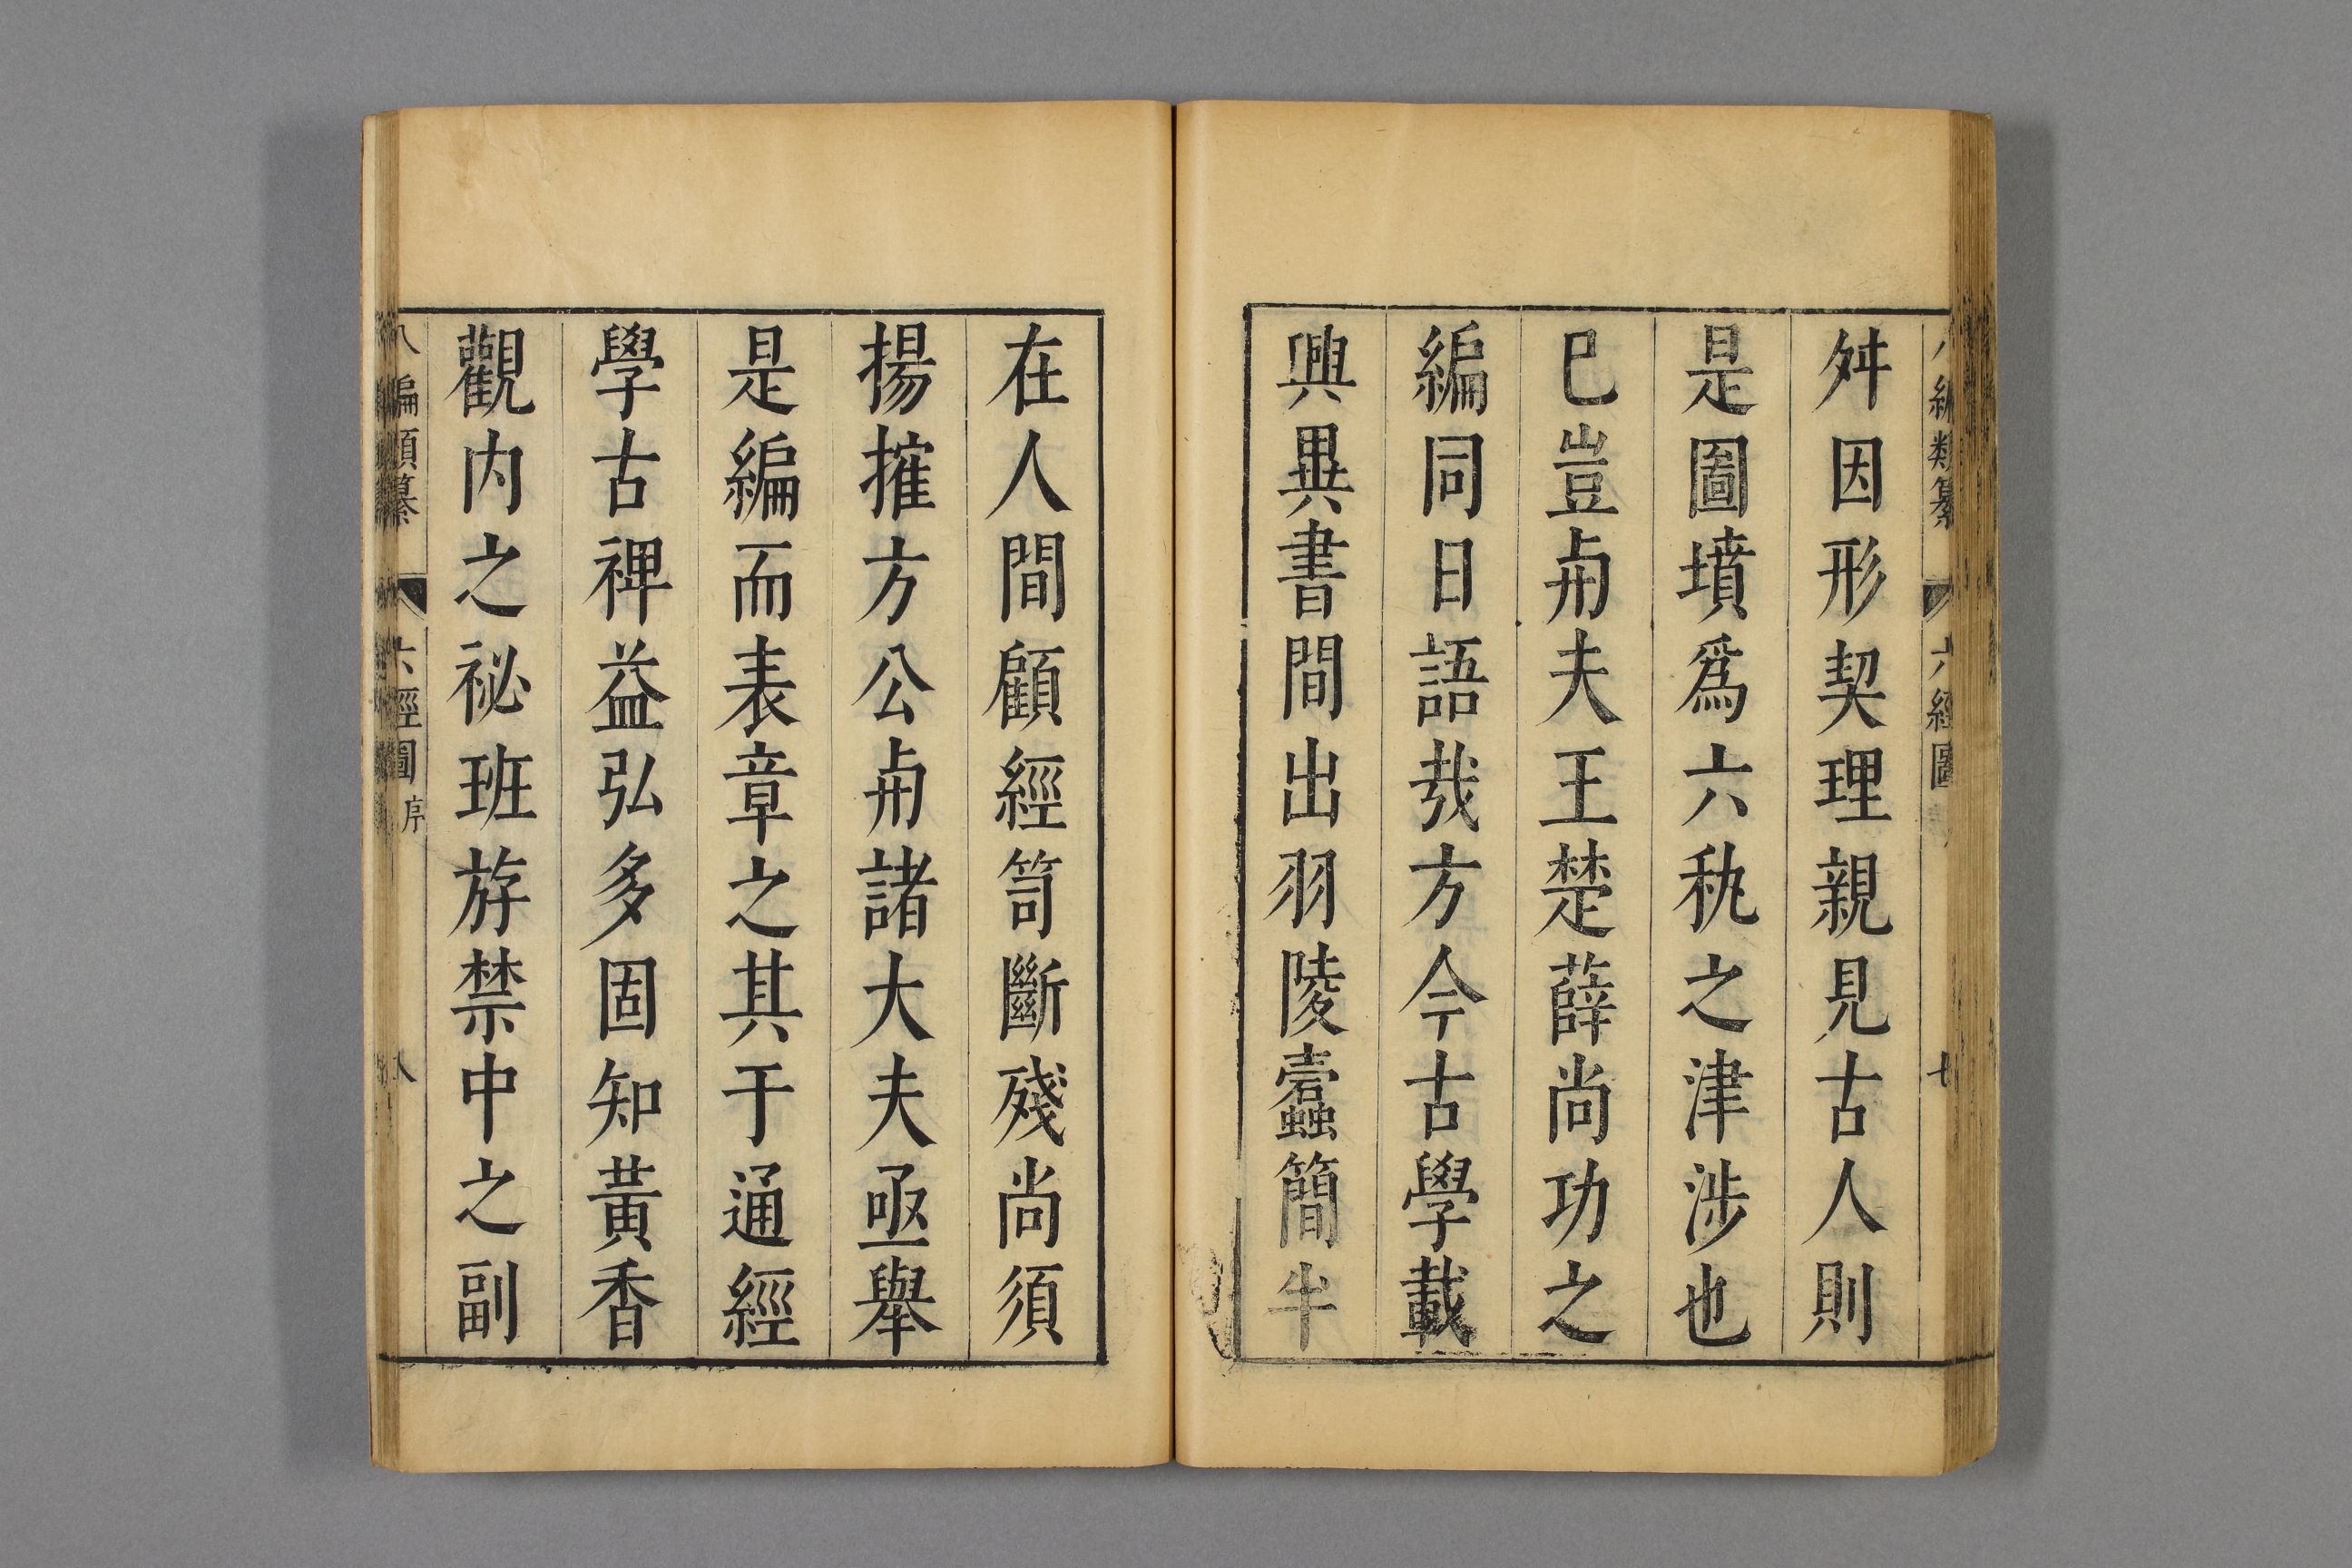 八編類纂 六經圖 七
舛因形契理親見古人則
是圖墳爲六秇之津涉也
巳豈舟夫王楚薛尚功之
編同日語㦲方今古學載
興異書間出羽陵蠧簡半
在人間顧經笥斷殘尚須
揚摧方公舟諸大夫亟舉
是編而表章之其于通經
學古禆益弘多固知黃香
觀内之祕班斿禁中之副
八編類纂 六經圖 序 八